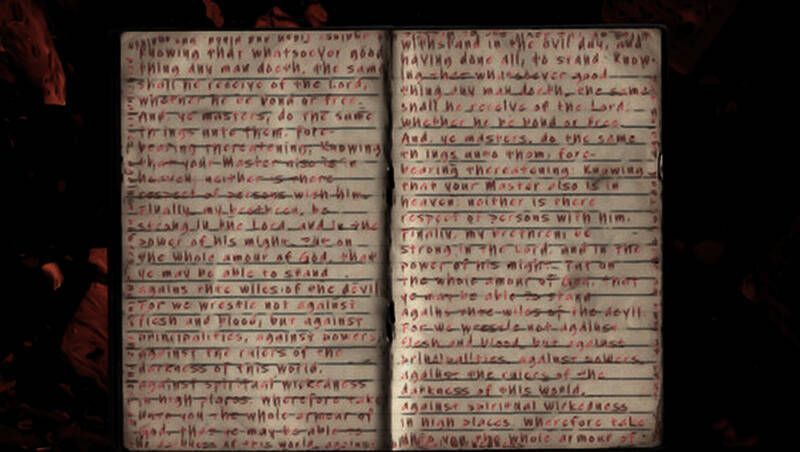 knowing that whatsoever good
thing any man doeth, the same
shall he receive of the Lord,
whether he be bond or free.
And, ye masters, do the same
things unto them, fore-
bearing threatening: knowing
that your Master also is in
heaven; neither is there
respect of persons with him.
Finally, my brethren, be
strong in the Lord and in the
power of his might. Put on
the whole amour of God, that
ye may be able to stand
agains thte wiles of the devil
For we wrestle not against
flesh and blood, but against
principalities, against powers,
against the rulers of the
darkness of this world,
against spiritual wickedness
in high places. Wherefore take
unto you the whole armour of
God, that ye may be able to
of this world, against
withstand in the evil day, and
having done all, to stand. Know-
ing thee whatsoever good
thing any man doeth, the same
shall he receive of the Lord,
whether he be bond or free.
And, ye masters, do the same
things unto them, fore-
bearing threatening: Knowing
that your Master also is in
heaven; neither is there
respect of persons with him.
Finally, my brethren, be
strong in the Lord and in the
power of his might. Put on
the whole amour of God, that
ye may be able to stand
agains thte wiles of the devil.
For we wrestle not against
flesh and blood, but against
principalities, against powers,
against the rulers of the
darkness of this world,
against spiritual wickedness
in high places. Wherefore take
unto you the whole armour of